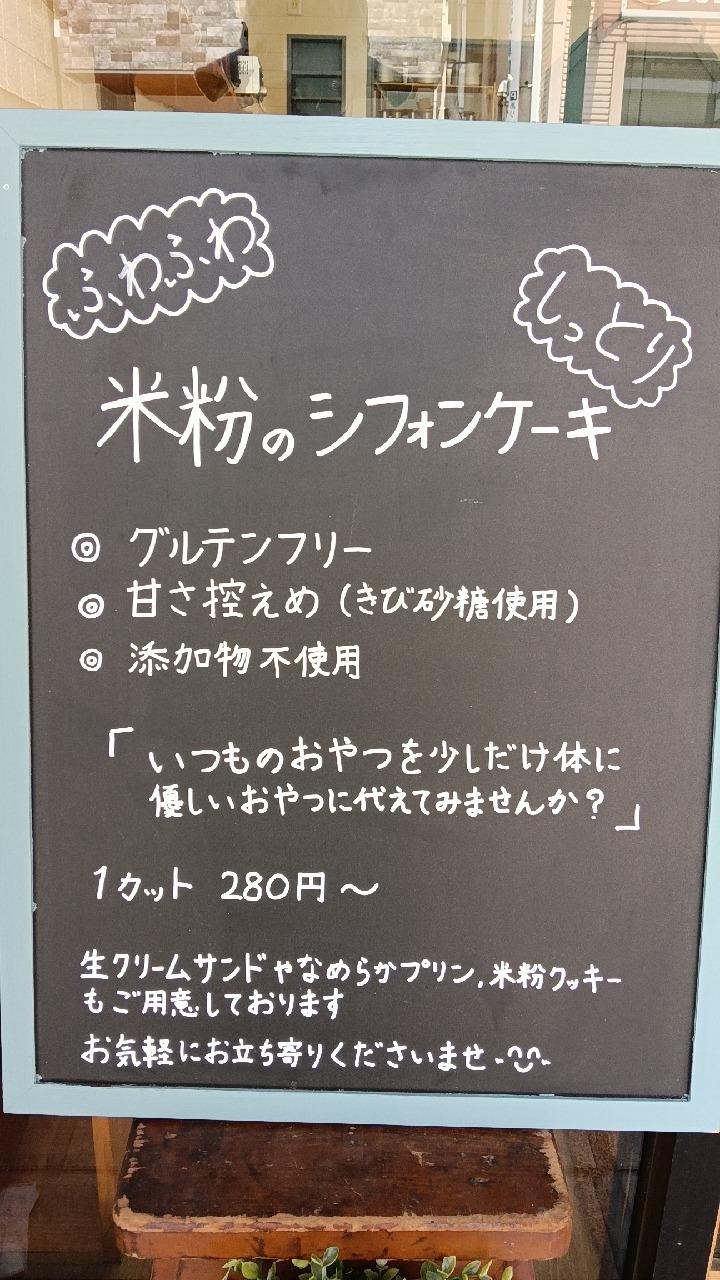 ふわふわ
しっとり
米粉のシフォンケーキ
◎ グルテンフリー
◎ 甘さ控えめ（きび砂糖使用）
◎ 添加物不使用
「いつものおやつを少しだけ体に
優しいおやつに代えてみませんか？」
1カット 280円～
生クリームサンドやなめらかプリン,米粉クッキー
もご用意しております
お気軽にお立ち寄りくださいませ